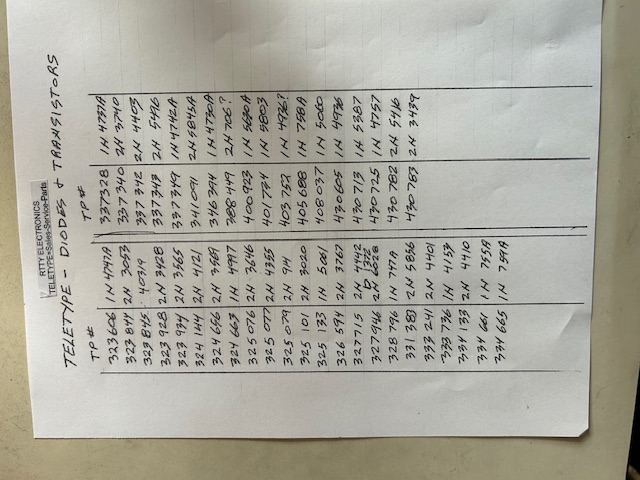 RTTY ELECTRONICS
TELETYPE-Sales-Service-Parts
TELETYPE - DIODES + TRANSISTORS
TP# TP#
323606 1N 4747A 337328 1N 4737A
323844 2N 3053 337340 2N 3740
323845 40319 337342 2N 4403
323928 2N 3428 337343 2N 5496
323934 2N 3565 337349 1N 4742A
324144 2N 4121 341091 2N 5845A
324656 2N 3569 346394 1N 4730A
324663 1N 4997 388449 2N 706?
325076 2N 3646 400923 1N 5620A
325077 2N 4355 401734 1N 5803
325079 2N 914 403752 1N 4936?
325101 2N 3020 405688 1N 758A
325133 1N 5061 408037 1N 5060
326594 2N 3767 430605 1N 4936
327715 2N 4442 430713 1N 5387
D 1372
327946 2N 6028 430725 1N 4757
328796 1N 747A 430782 2N 5416
331383 2N 5856 430783 2N 3439
333241 2N 4401
333736 1N 4153
334133 2N 4410
334661 1N 752A
334665 1N 759A